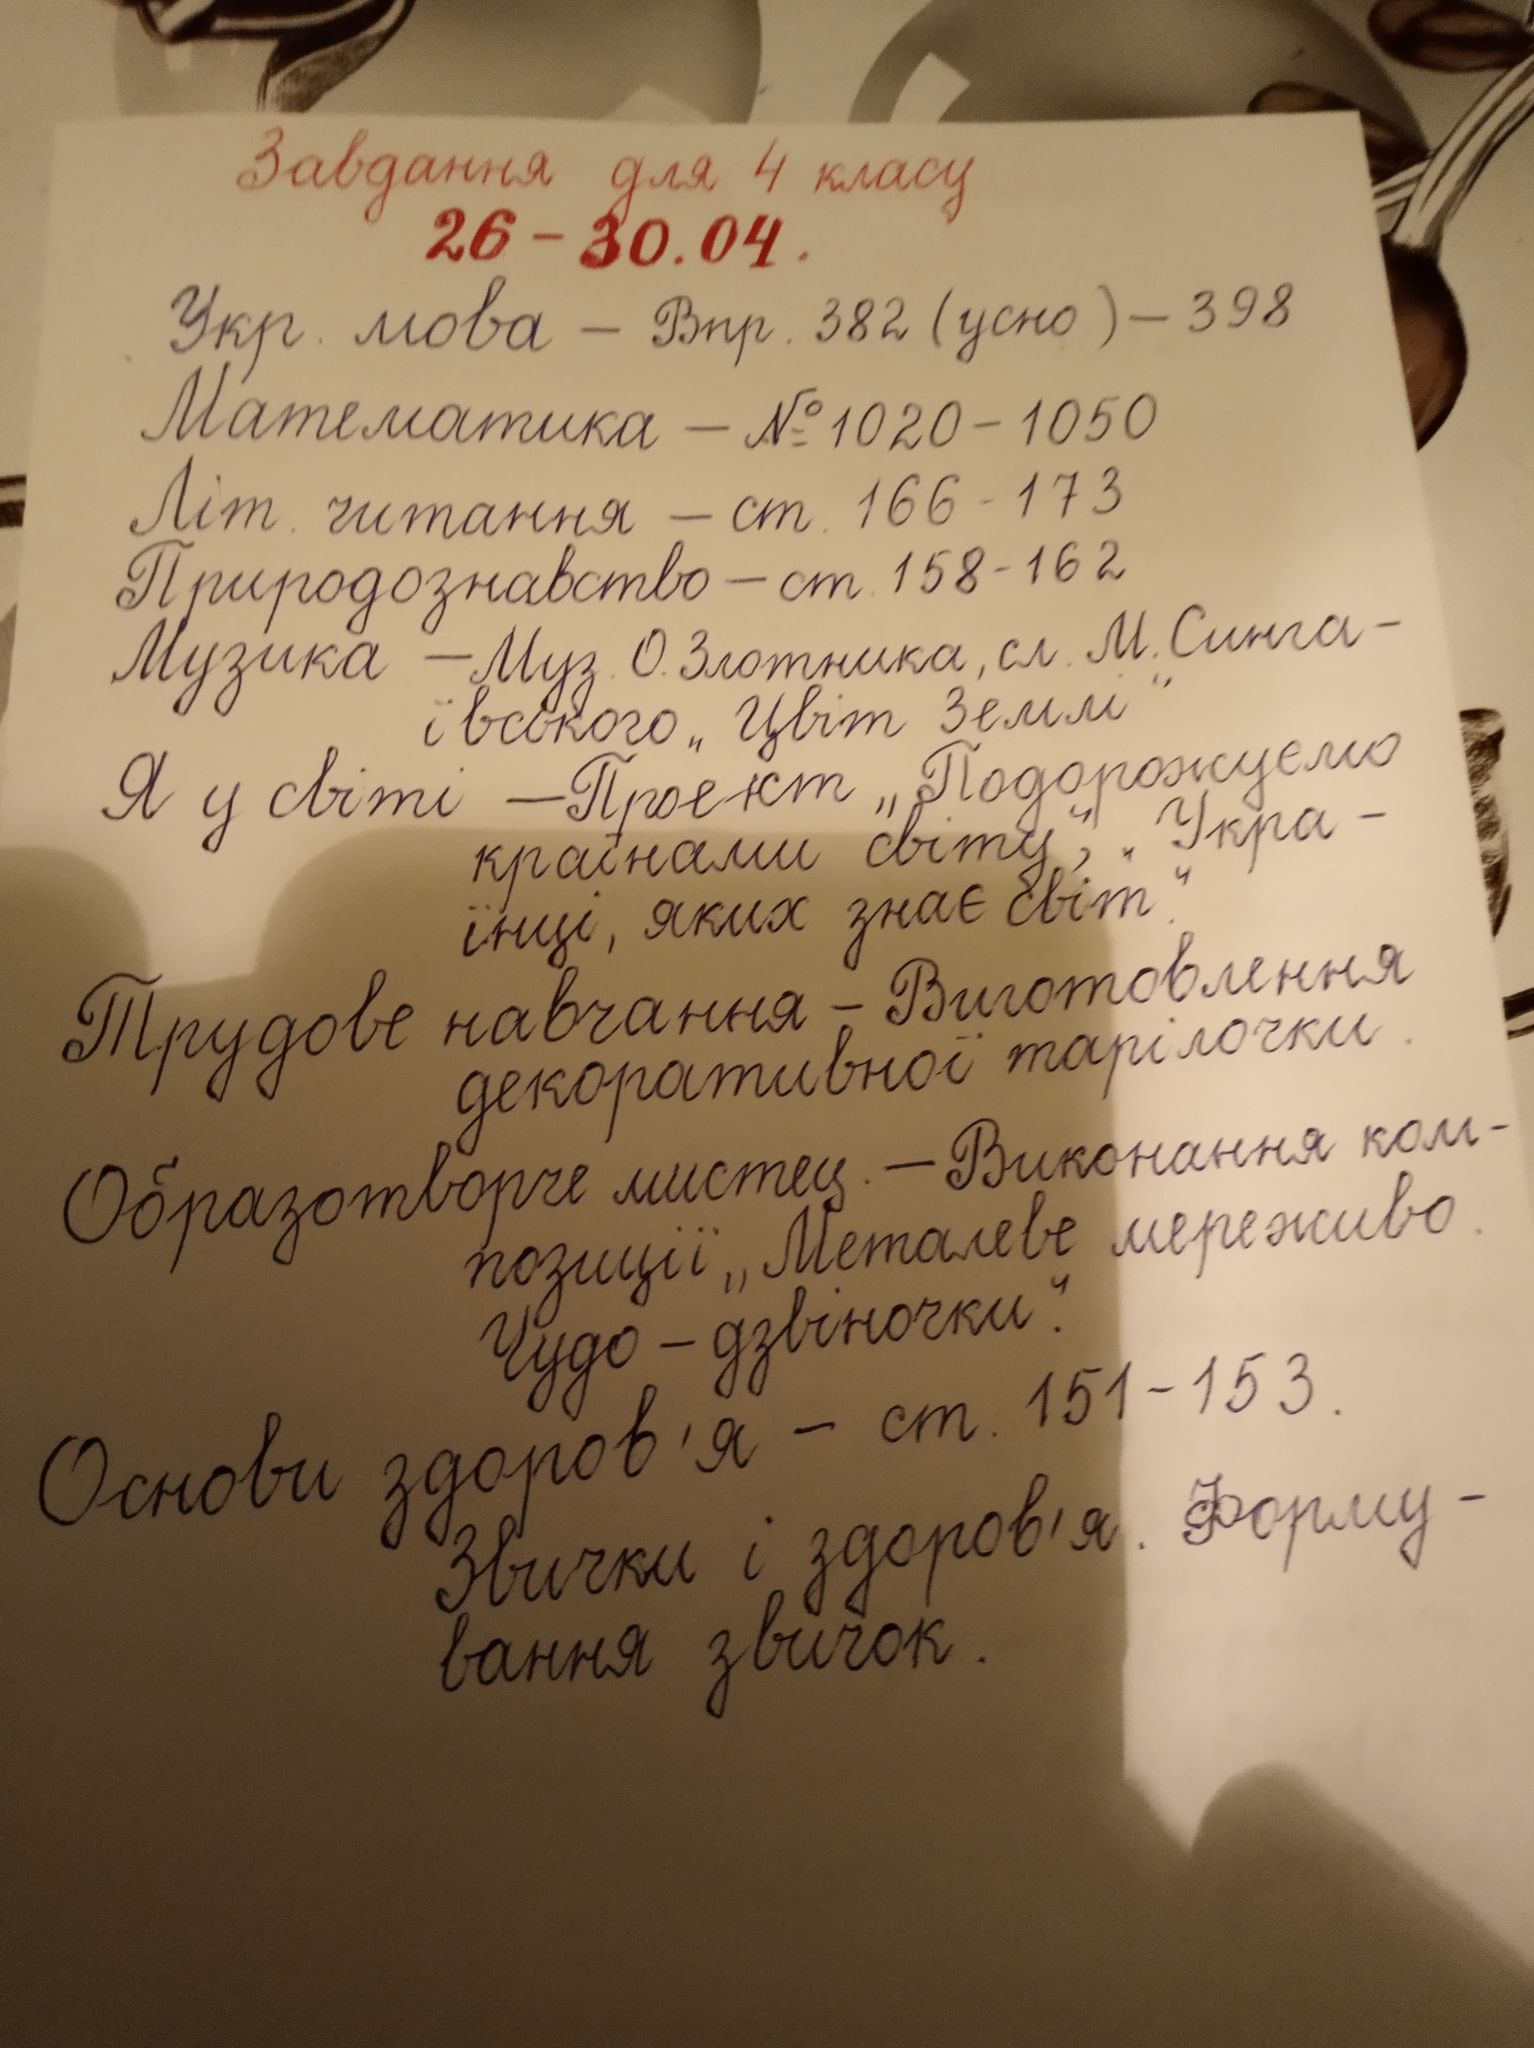 Завдання для 4 класу
26 - 30.04.
Укр. мова - Впр. 382 (усно) - 398
Математика - № 1020 - 1050
Літ. читання - ст. 166 - 173
Природознавство - ст. 158 - 162
Музика - Муз. О. Злотника, сл. М. Синга-
ївського „Цвіт Землі"
Я у світі - Проект „Подорожуємо
країнами світу", „Укра-
їнці, яких знає світ".
Трудове навчання - Виготовлення
декоративної тарілочки.
Образотворче мистец. - Виконання ком-
позиції „Металеве мереживо.
Чудо - дзвіночки".
Основи здоров'я - ст. 151 - 153.
Звички і здоров'я. Форму-
вання звичок.